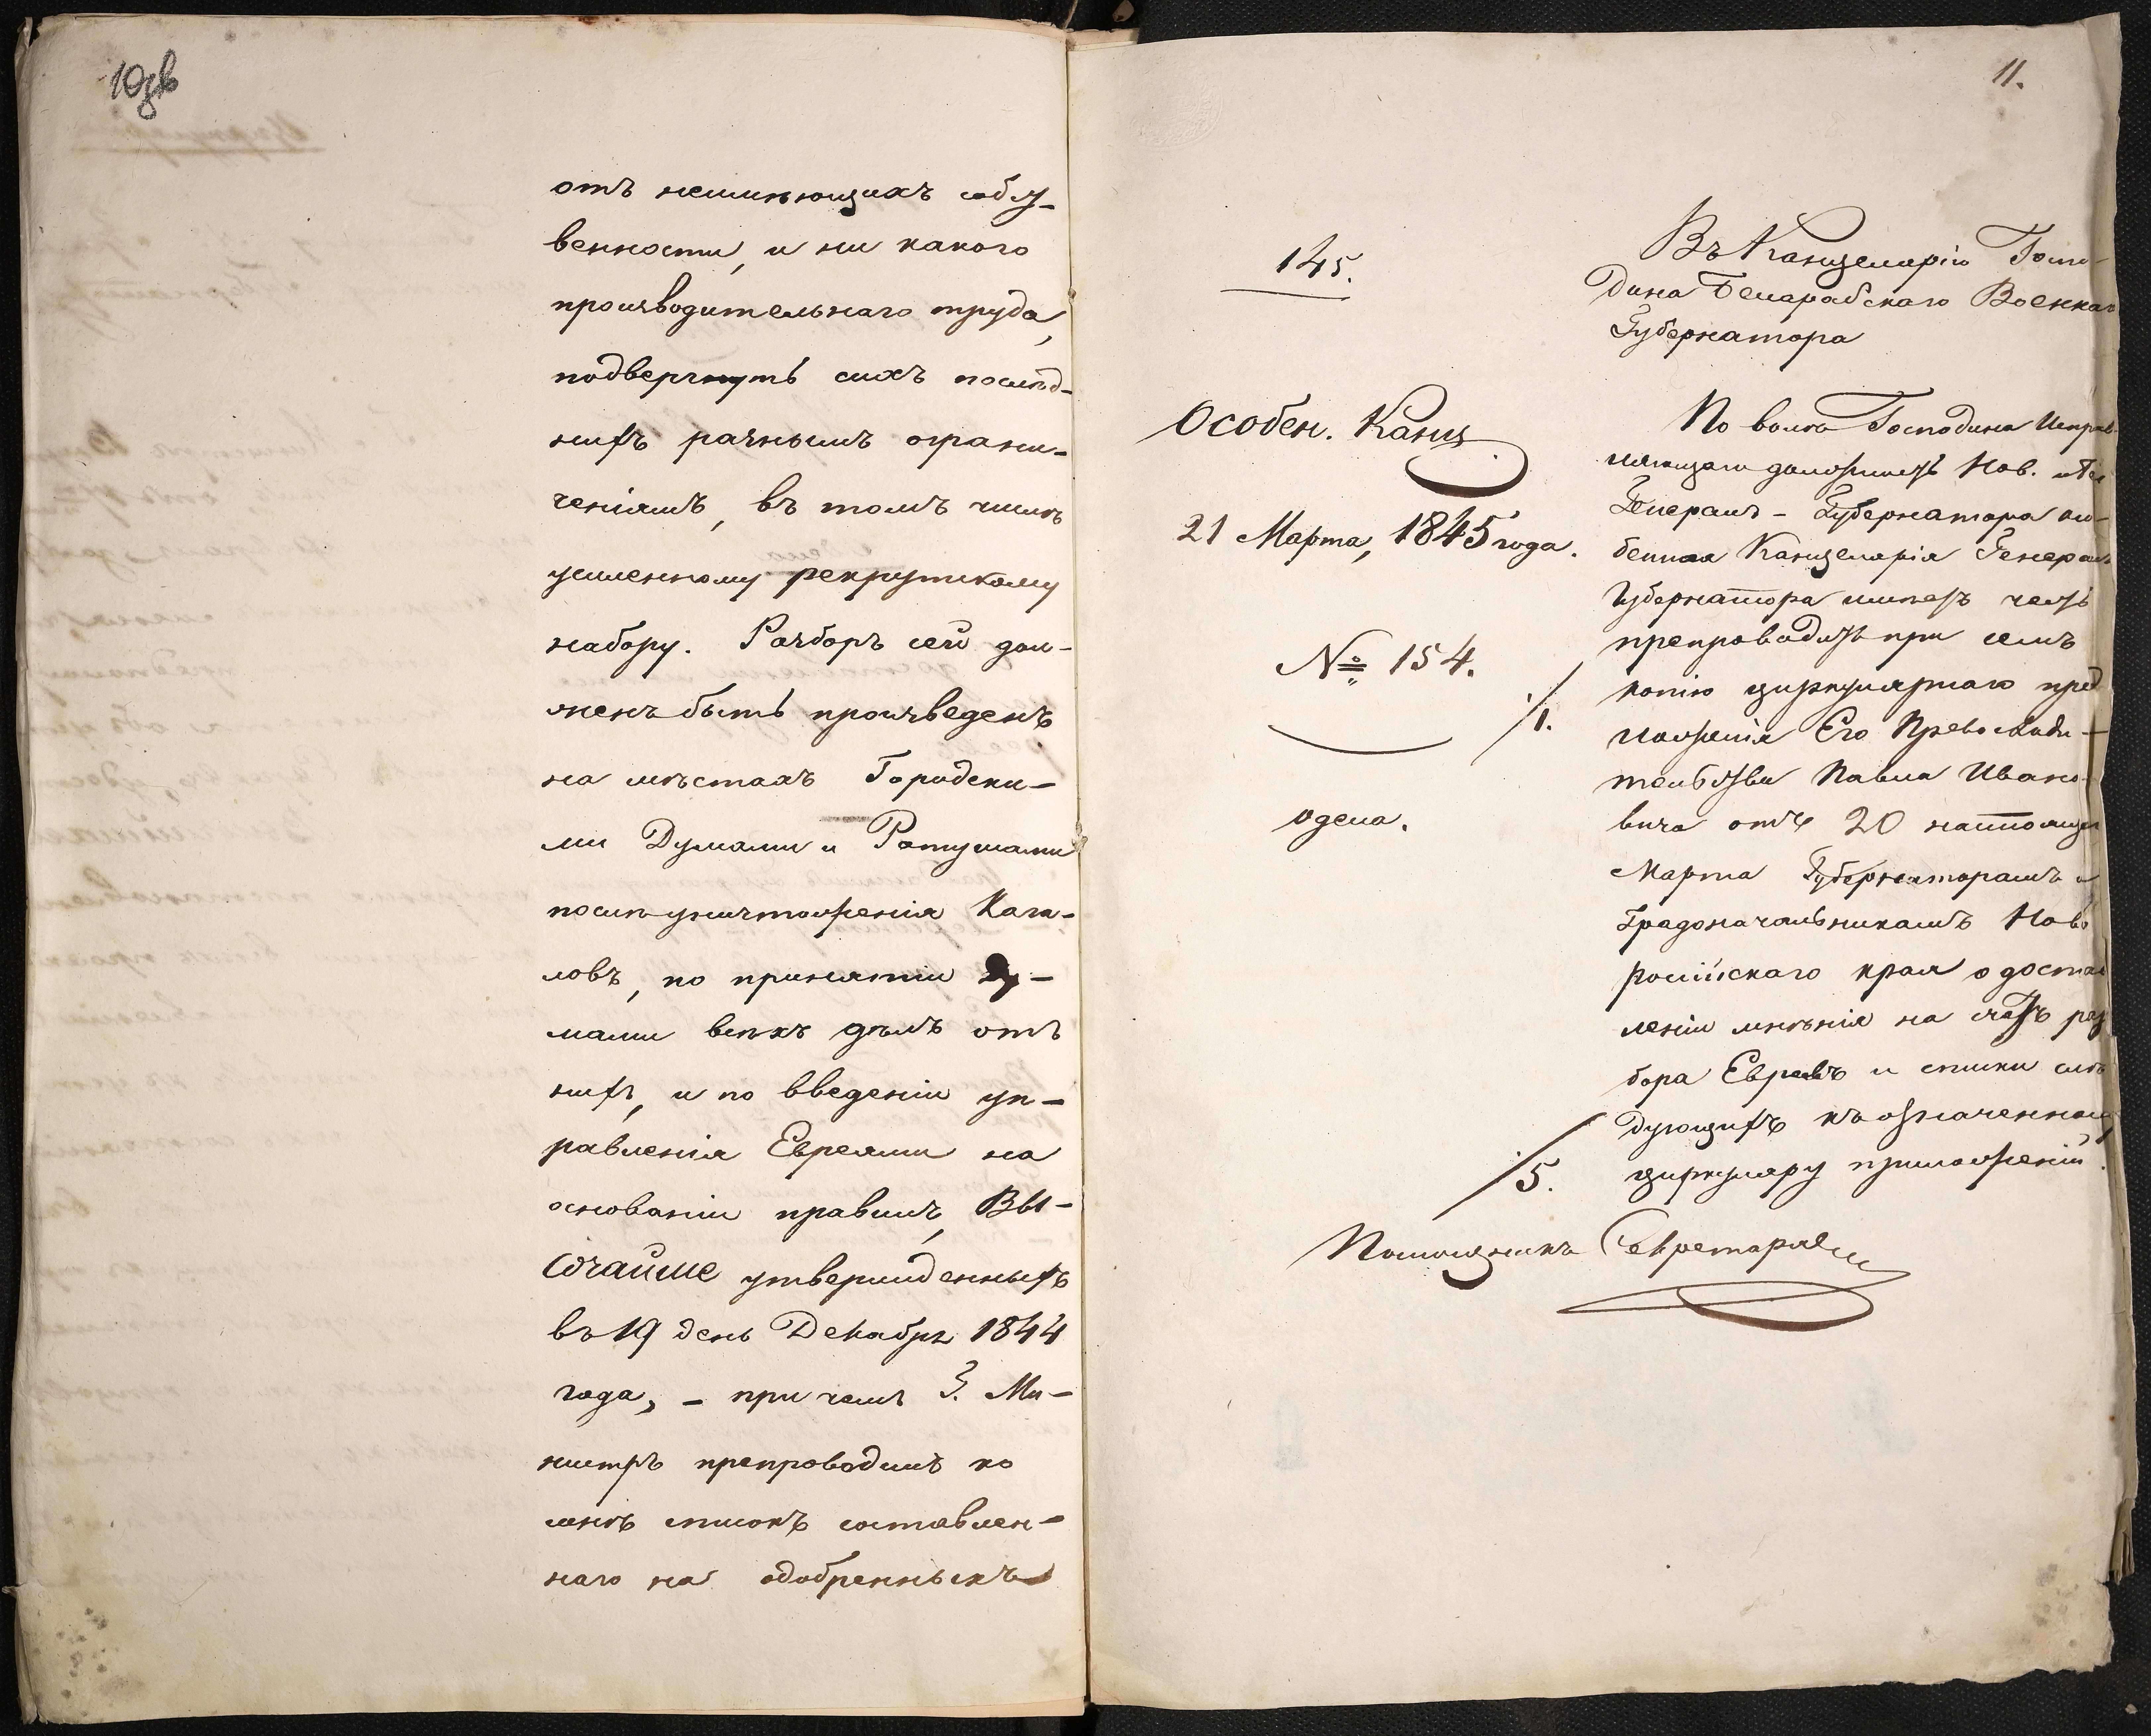 10 зв
отъ неимѣющихъ собст-
венности, и ни какого
производительнаго труда,
подвергнуть сихъ послѣд-
нихъ разнымъ ограни-
ченіямъ, въ томъ числѣ
усиленному рекрутскому
набору. Разборъ сей дол-
женъ быть произведенъ
на мѣстахъ Городски-
ми Думами и Ратушами
послѣ уничтоженія Кага-
ловъ, по принятіи Ду-
мами всѣхъ дѣлъ отъ
нихъ, и по введеніи уп-
равленія Евреями на
основаніи правилъ, Вы-
сочайше утвержденныхъ
въ 19 день Декабря 1844
года, - при чемъ Г. Ми-
нистръ препроводилъ ко
мнѣ списокъ составлен-
наго на одобренныхъ
11.
145.
Особен. Канц.
21 Марта, 1845 года.
№ 154.
Одеса.
Въ Канцелярію Госпо-
дина Бесарабскаго Военнаго
Губернатора
По волѣ Господина Исправ-
ляющаго должность Нов. и Бес.
Генералъ-Губернатора осо-
бенная Канцелярія Генералъ
Губернатора имѣетъ честь
препроводить при семъ
/1.
копію циркулярнаго пред
ложенія Его Превосходи-
тельства Павла Ивано-
вича отъ 20 настоящаго
Марта Губернаторамъ и
Градоначальникамъ Ново
россійскаго края о достав
леніи мнѣнія на счетъ раз
бора Евреевъ и списки слѣ
дующихъ къ означенному
/5.
циркуляру приложеній.
Помощникъ Секретаря